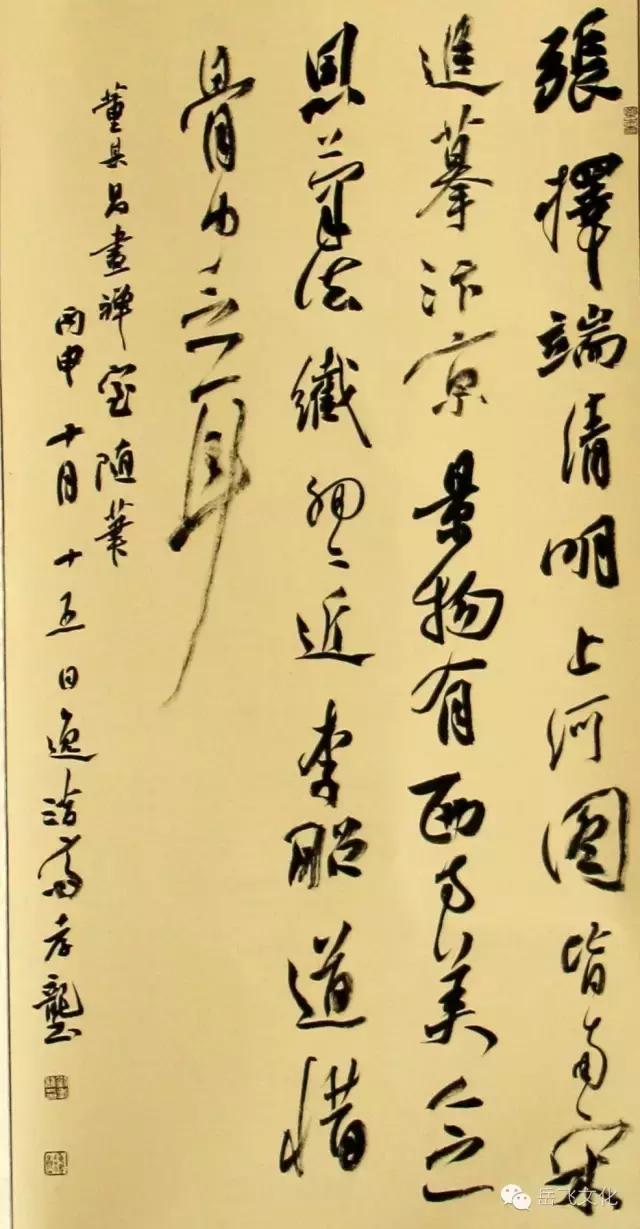 張擇端清明上河圖皆南宋
追摹汴京景物有西方美人之
思筆法纖細近李昭道惜
骨力乏耳
董其昌畫禅室随筆
丙申十月十五日逸
岳飞文化